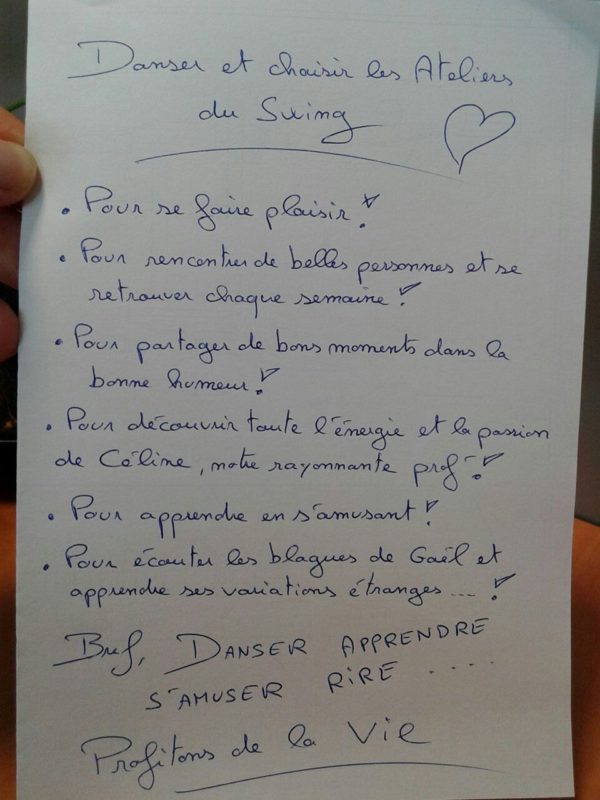 Danser et choisir les Ateliers
du Swing
• Pour se faire plaisir !
• Pour rencontrer de belles personnes et se
retrouver chaque semaine !
• Pour partager de bons moments dans la
bonne humeur !
• Pour découvrir toute l'énergie et la passion
de Céline, notre rayonnante prof !
• Pour apprendre en s'amusant !
• Pour écouter les blagues de Gaël et
apprendre ses variations étranges .... !
Bref, DANSER APPRENDRE
S'AMUSER RIRE ....
Profitons de la Vie